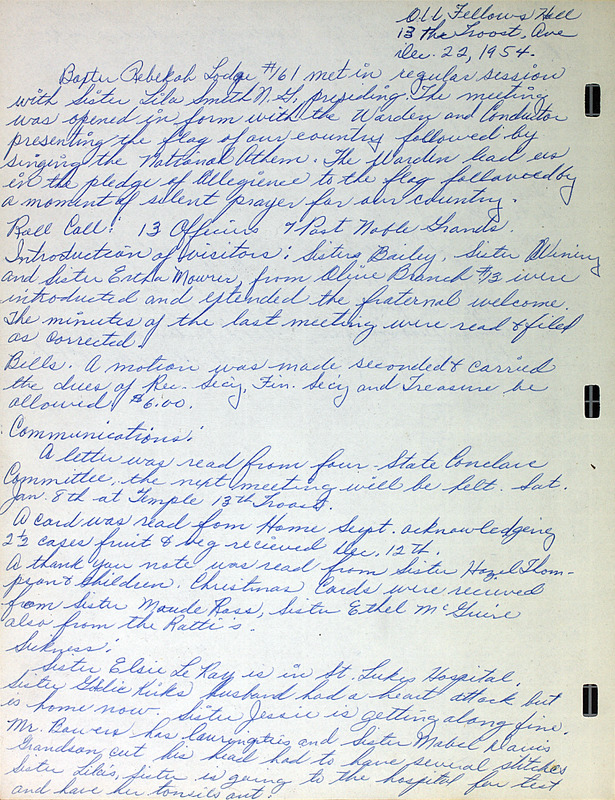 Odd Fellows Hall
13 the Troost, Ave
Dec. 22, 1954.
Baxter Rebekah Lodge #161 met in regular session
with Sister Lila Smith N. G. presiding. The meeting
was opened in form with the Warden and Conductor
presenting the flag of our country followed by
singing the National Athem. The Warden lead us
in the pledge of Allegience to the flag followed by
a moment of silent prayer for our country.
Roll Call: 13 Officers 7 Past Noble Grands.
Introduction of visitors: Sisters Bailey, Sister Wining
and Sister Ertha Mowrer, from Olive Branch #13 were
introduced and extended the fraternal welcome.
The minutes of the last meeting were read & filed
as corrected.
Bills. A motion was made seconded & carried
the dues of Rec. Secy, Fin. Secy and Treasure be
allowed $6.00.
Communications:
A letter was read from four-State Conclave
Committee, the next meeting will be helt. Sat.
Jan. 8th at Temple 13th Troost.
A card was read fom Home Supt. acknowledgeing
2½ cases fruit & veg recieved Dec. 12th.
A thank you note was read from Sister Hazel Thom-
pson & Children. Christmas Cards were recieved
from Sister Maude Ross, Sister Ethel McGuire
also from the Ratti's.
Sickness:
Sister Elsie Le Roy is in St. Lukes Hospital.
Sister Goldie Kirks husband had a heart attack but
is home now. Sister Jessie is getting along fine.
Mr. Bowers has and Sister Mabel Davis
Grandson cut his head had to have several stitches
Sister Lila's sister is going to the hospital for test
and have her tonsils out.